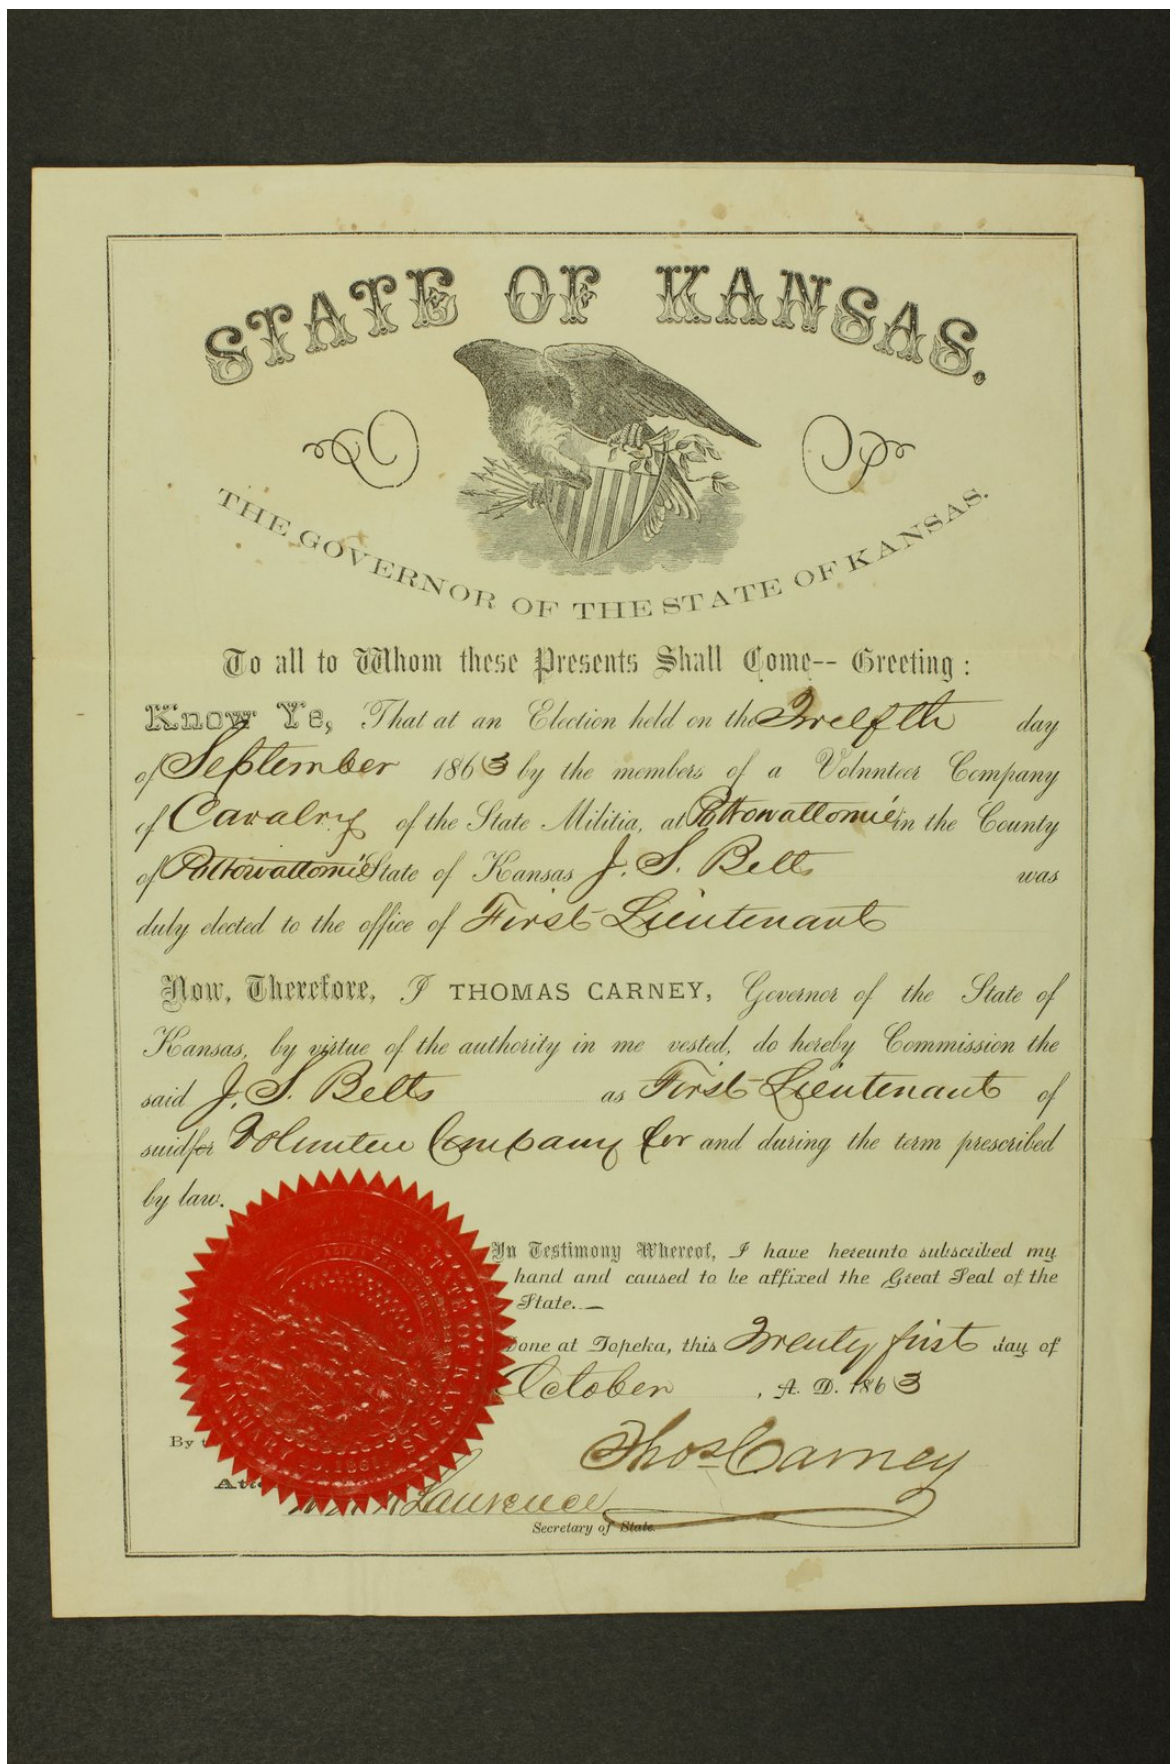 STATE OF KANSAS.
THE GOVERNOR OF THE STATE OF KANSAS.
To all to Whom these Presents Shall Come-- Greeting:
Know Ye, That at an Election held on the Twelfth day
of September 1863 by the members of a Volunteer Company
of Cavalry of the State Militia, at Pottowattomie in the County
of Pottowattomie State of Kansas J. S. Betts was
duly elected to the office of First Lieutenant
Now, Therefore, I THOMAS CARNEY, Governor of the State of
Kansas, by virtue of the authority in me vested, do hereby Commission the
said J. S. Betts as First Lieutenant of
said for Volunteer Company for and during the term prescribed
by law.
In Testimony Whereof, I have hereunto subscribed my
hand and caused to be affixed the Great Seal of the
State.—
Done at Topeka, this Twenty first day of
October , A. D. 1863
Thos Carney
By
Lawrence
Secretary of State.